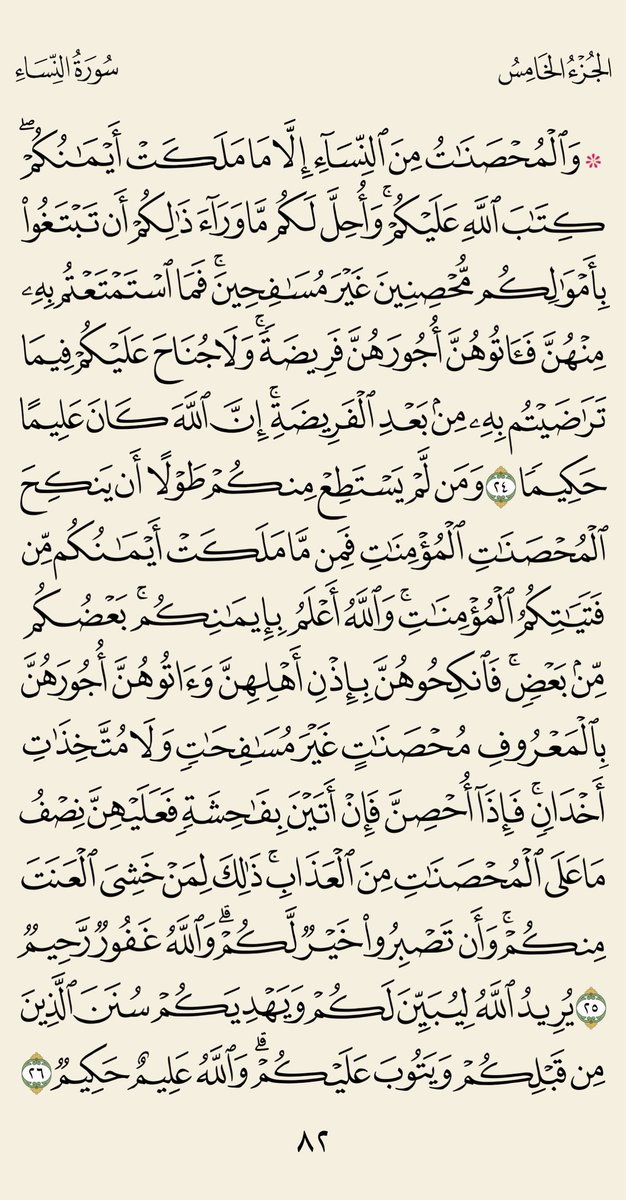 الجُزْءُ الخَامِسُ سُورَةُ النِّسَاءِ
* وَٱلْمُحْصَنَٰتُ مِنَ ٱلنِّسَآءِ إِلَّا مَا مَلَكَتْ أَيْمَٰنُكُمْۖ
كِتَٰبَ ٱللَّهِ عَلَيْكُمْۚ وَأُحِلَّ لَكُم مَّا وَرَآءَ ذَٰلِكُمْ أَن تَبْتَغُوا۟
بِأَمْوَٰلِكُم مُّحْصِنِينَ غَيْرَ مُسَٰفِحِينَۚ فَمَا ٱسْتَمْتَعْتُم بِهِۦ
مِنْهُنَّ فَـَٔاتُوهُنَّ أُجُورَهُنَّ فَرِيضَةًۚ وَلَا جُنَاحَ عَلَيْكُمْ فِيمَا
تَرَٰضَيْتُم بِهِۦ مِنۢ بَعْدِ ٱلْفَرِيضَةِۚ إِنَّ ٱللَّهَ كَانَ عَلِيمًا
حَكِيمًا ٢٤ وَمَن لَّمْ يَسْتَطِعْ مِنكُمْ طَوْلًا أَن يَنكِحَ
ٱلْمُحْصَنَٰتِ ٱلْمُؤْمِنَٰتِ فَمِن مَّا مَلَكَتْ أَيْمَٰنُكُم مِّن
فَتَيَٰتِكُمُ ٱلْمُؤْمِنَٰتِۚ وَٱللَّهُ أَعْلَمُ بِإِيمَٰنِكُمۚ بَعْضُكُم
مِّنۢ بَعْضٍۚ فَٱنكِحُوهُنَّ بِإِذْنِ أَهْلِهِنَّ وَءَاتُوهُنَّ أُجُورَهُنَّ
بِٱلْمَعْرُوفِ مُحْصَنَٰتٍ غَيْرَ مُسَٰفِحَٰتٍ وَلَا مُتَّخِذَٰتِ
أَخْدَانٍۚ فَإِذَآ أُحْصِنَّ فَإِنْ أَتَيْنَ بِفَٰحِشَةٍ فَعَلَيْهِنَّ نِصْفُ
مَا عَلَى ٱلْمُحْصَنَٰتِ مِنَ ٱلْعَذَابِۚ ذَٰلِكَ لِمَنْ خَشِىَ ٱلْعَنَتَ
مِنكُمْۚ وَأَن تَصْبِرُوا۟ خَيْرٌ لَّكُمْۗ وَٱللَّهُ غَفُورٌ رَّحِيمٌ
٢٥ يُرِيدُ ٱللَّهُ لِيُبَيِّنَ لَكُمْ وَيَهْدِيَكُمْ سُنَنَ ٱلَّذِينَ
مِن قَبْلِكُمْ وَيَتُوبَ عَلَيْكُمْۗ وَٱللَّهُ عَلِيمٌ حَكِيمٌ ٢٦
٨٢